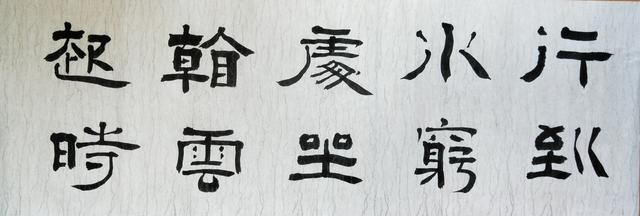 行到
水窮
處坐
看雲
起時